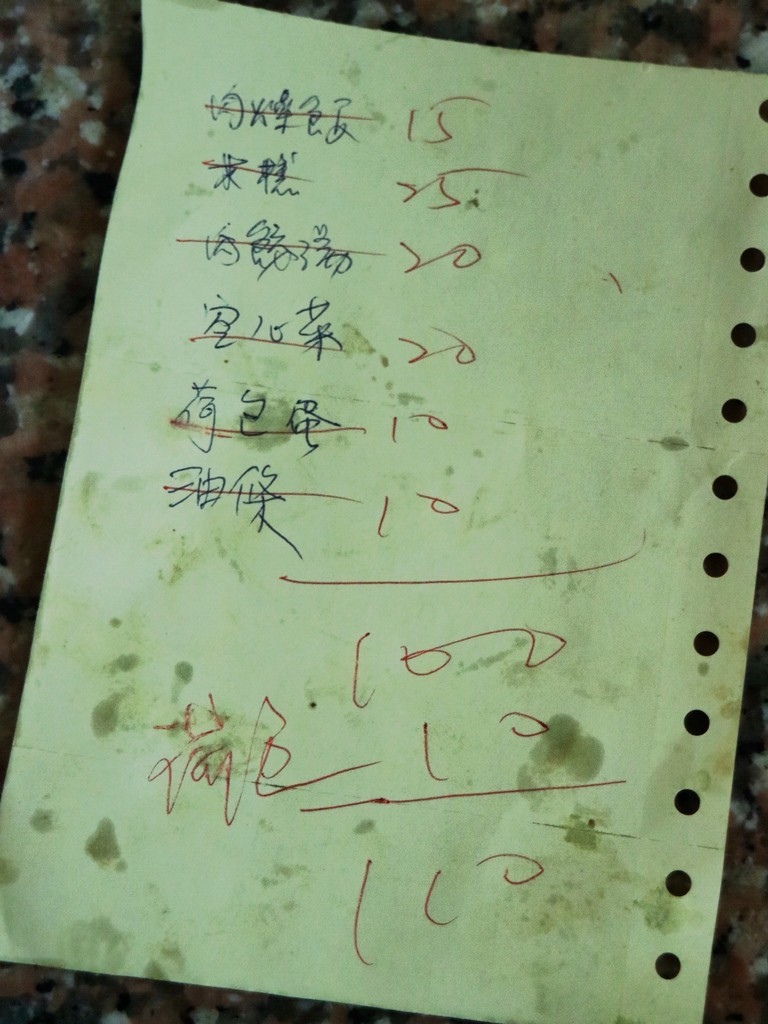 肉燥飯 15
米糕 25
肉 湯 20
空心菜 20
荷包蛋 10
油條 10
100
荷包 10
110